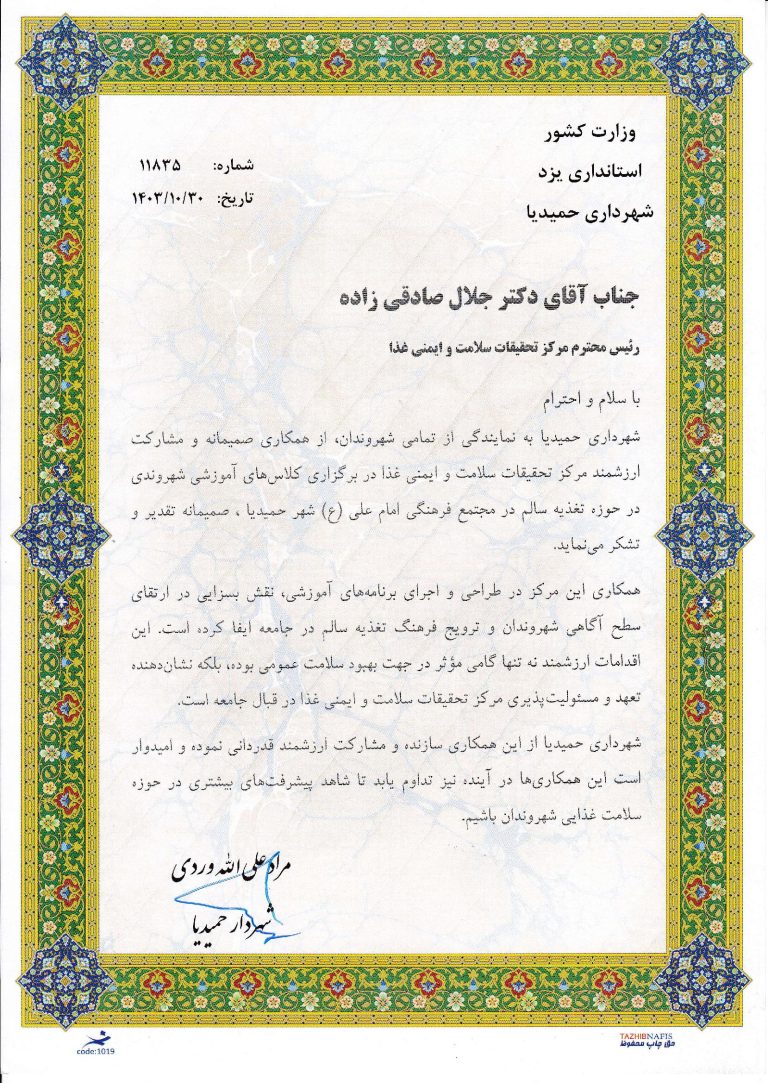 وزارت کشور
استانداری یزد
شهرداری حمیدیا
شماره: ۱۱۸۳۵
تاریخ: ۱۴۰۳/۱۰/۳۰
جناب آقای دکتر جلال صادقی زاده
رئیس محترم مرکز تحقیقات سلامت و ایمنی غذا
با سلام و احترام
شهرداری حمیدیا به نمایندگی از تمامی شهروندان، از همکاری صمیمانه و مشارکت
ارزشمند مرکز تحقیقات سلامت و ایمنی غذا در برگزاری کلاس‌های آموزشی شهروندی
در حوزه تغذیه سالم در مجتمع فرهنگی امام علی (ع) شهر حمیدیا ، صمیمانه تقدیر و
تشکر می‌نماید.
همکاری این مرکز در طراحی و اجرای برنامه‌های آموزشی، نقش بسزایی در ارتقای
سطح آگاهی شهروندان و ترویج فرهنگ تغذیه سالم در جامعه ایفا کرده است. این
اقدامات ارزشمند نه تنها گامی مؤثر در جهت بهبود سلامت عمومی بوده، بلکه نشان‌دهنده
تعهد و مسئولیت‌پذیری مرکز تحقیقات سلامت و ایمنی غذا در قبال جامعه است.
شهرداری حمیدیا از این همکاری سازنده و مشارکت ارزشمند قدردانی نموده و امیدوار
است این همکاری‌ها در آینده نیز تداوم یابد تا شاهد پیشرفت‌های بیشتری در حوزه
سلامت غذایی شهروندان باشیم.
مراد علی الله وردی
شهردار حمیدیا
code:1019
TAZHIBNAFIS
حق چاپ محفوظ